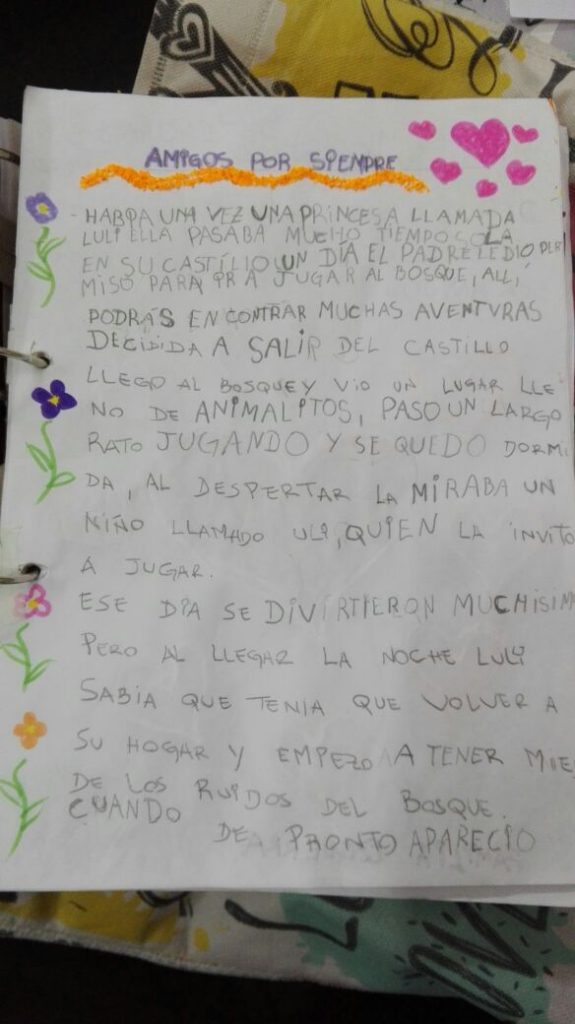 AMIGOS POR SIEMPRE
- HABÍA UNA VEZ UNA PRINCESA LLAMADA
LULI ELLA PASABA MUCHO TIEMPO SOLA
EN SU CASTILLO UN DÍA EL PADRE LE DIO PER
MISO PARA IR A JUGAR AL BOSQUE, ALLÍ
PODRÁS ENCONTRAR MUCHAS AVENTURAS
DECIDIDA A SALIR DEL CASTILLO
LLEGO AL BOSQUE Y VIO UN LUGAR LLE
NO DE ANIMALITOS, PASO UN LARGO
RATO JUGANDO Y SE QUEDO DORMI
DA, AL DESPERTAR LA MIRABA UN
NIÑO LLAMADO ULI, QUIEN LA INVITO
A JUGAR.
ESE DIA SE DIVIRTIERON MUCHISIM
PERO AL LLEGAR LA NOCHE LULI
SABIA QUE TENIA QUE VOLVER A
SU HOGAR Y EMPEZO A TENER MIE
DE LOS RUIDOS DEL BOSQUE.
CUANDO
DE PRONTO APARECIO